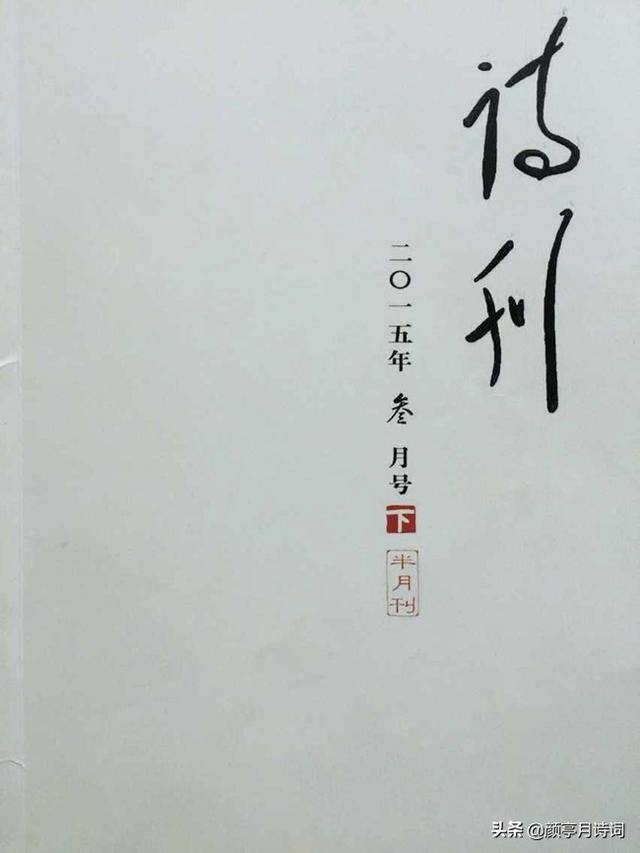 诗刊
二〇一五年 叁 月号 下
半月刊
头条 @颜亭月诗词